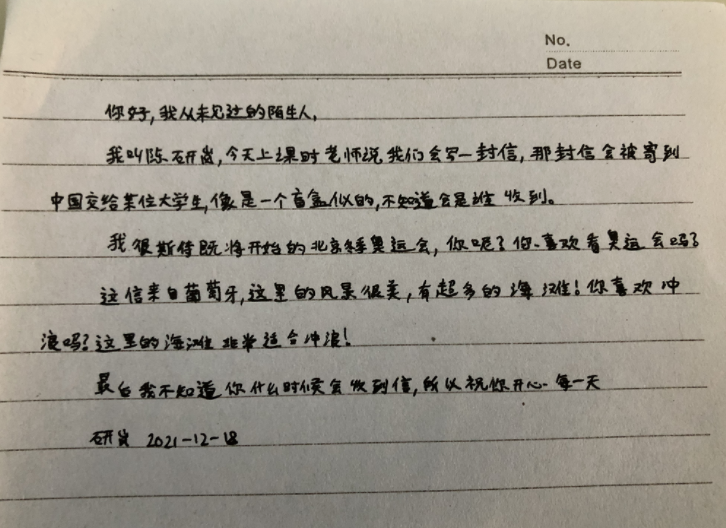 No.
Date
你好,我从未见过的陌生人,
我叫陈研岚,今天上课时老师说我们会写一封信,那封信会被寄到
中国交给某位大学生,像是一个盲盒似的,不知道会是谁收到。
我很斯待既将开始的北京冬季奥运会,你呢?你喜欢看奥运会吗?
这信来自葡萄牙,这里的风景很美,有超多的海滩!你喜欢冲
浪吗?这里的海滩非常适合冲浪!
最后我不知道你什么时候会收到信,所以祝你开心每一天
研岚 2021-12-18